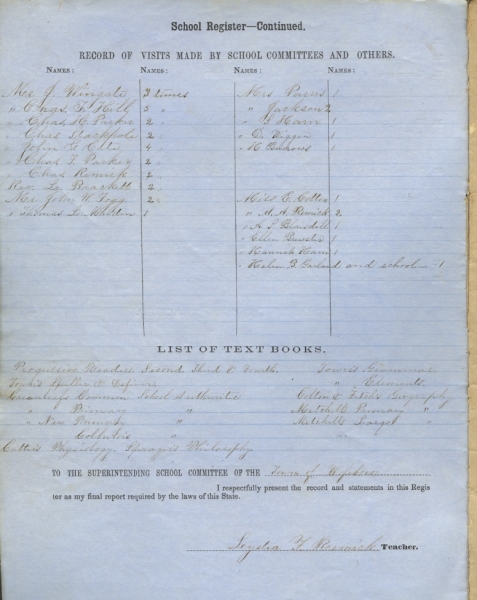 School Register—Continued.
RECORD OF VISITS MADE BY SCHOOL COMMITTEES AND OTHERS.
NAMES: NAMES: NAMES: NAMES:
Mr J. Wingate 3 times
" F. Hill 5 "
" Chas H. Parker 2 "
" Chas Stackpole 2 "
" John G. 4 "
" Chas F. Parker 2 "
" Chas Remick 2 "
Rev. Lo Brackett 2 "
Mr. John W. Fogg 2 "
" Thomas L. 1
Mrs 1
" Jackson 2
" Ham 1
" D. 1
" H 1
Miss E. Cotton 1
" M. A. Remick 2
" A. S. Blaisdell 1
" Ellen 1
" Hannah Ham 1
" Helen B. Garland and school 1
LIST OF TEXT BOOKS.
Progressive Reader Second Third & Fourth
Town's Speller & Definer
Greenleaf's Common School Arithmetic
" Primary "
" New Primary
Colburn's "
Cutter's Physiology Philosophy
Tower's Grammar
" Elements
Colton & Fitch's Geography
Mitchell's Primary "
Mitchell's "
TO THE SUPERINTENDING SCHOOL COMMITTEE OF THE Town of
I respectfully present the record and statements in this Regis
ter as my final report required by the laws of this State.
Lydia F. Remick Teacher.